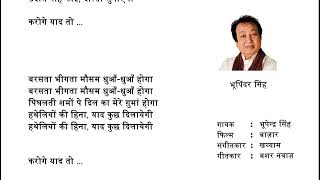 करोगे याद तो ...
बरसता भीगता मौसम धुआँ-धुआँ होगा
बरसता भीगता मौसम धुआँ-धुआँ होगा
पिघलती शमों पे दिल का मेरे गुमां होगा
हथेलियों की हिना, याद कुछ दिलायेगी
हथेलियों की हिना, याद कुछ दिलायेगी
करोगे याद तो ...
भूपिंदर सिंह
गायक : भूपेन्द्र सिंह
फिल्म : बाज़ार
संगीतकार : खय्याम
गीतकार : बशर नवाज़